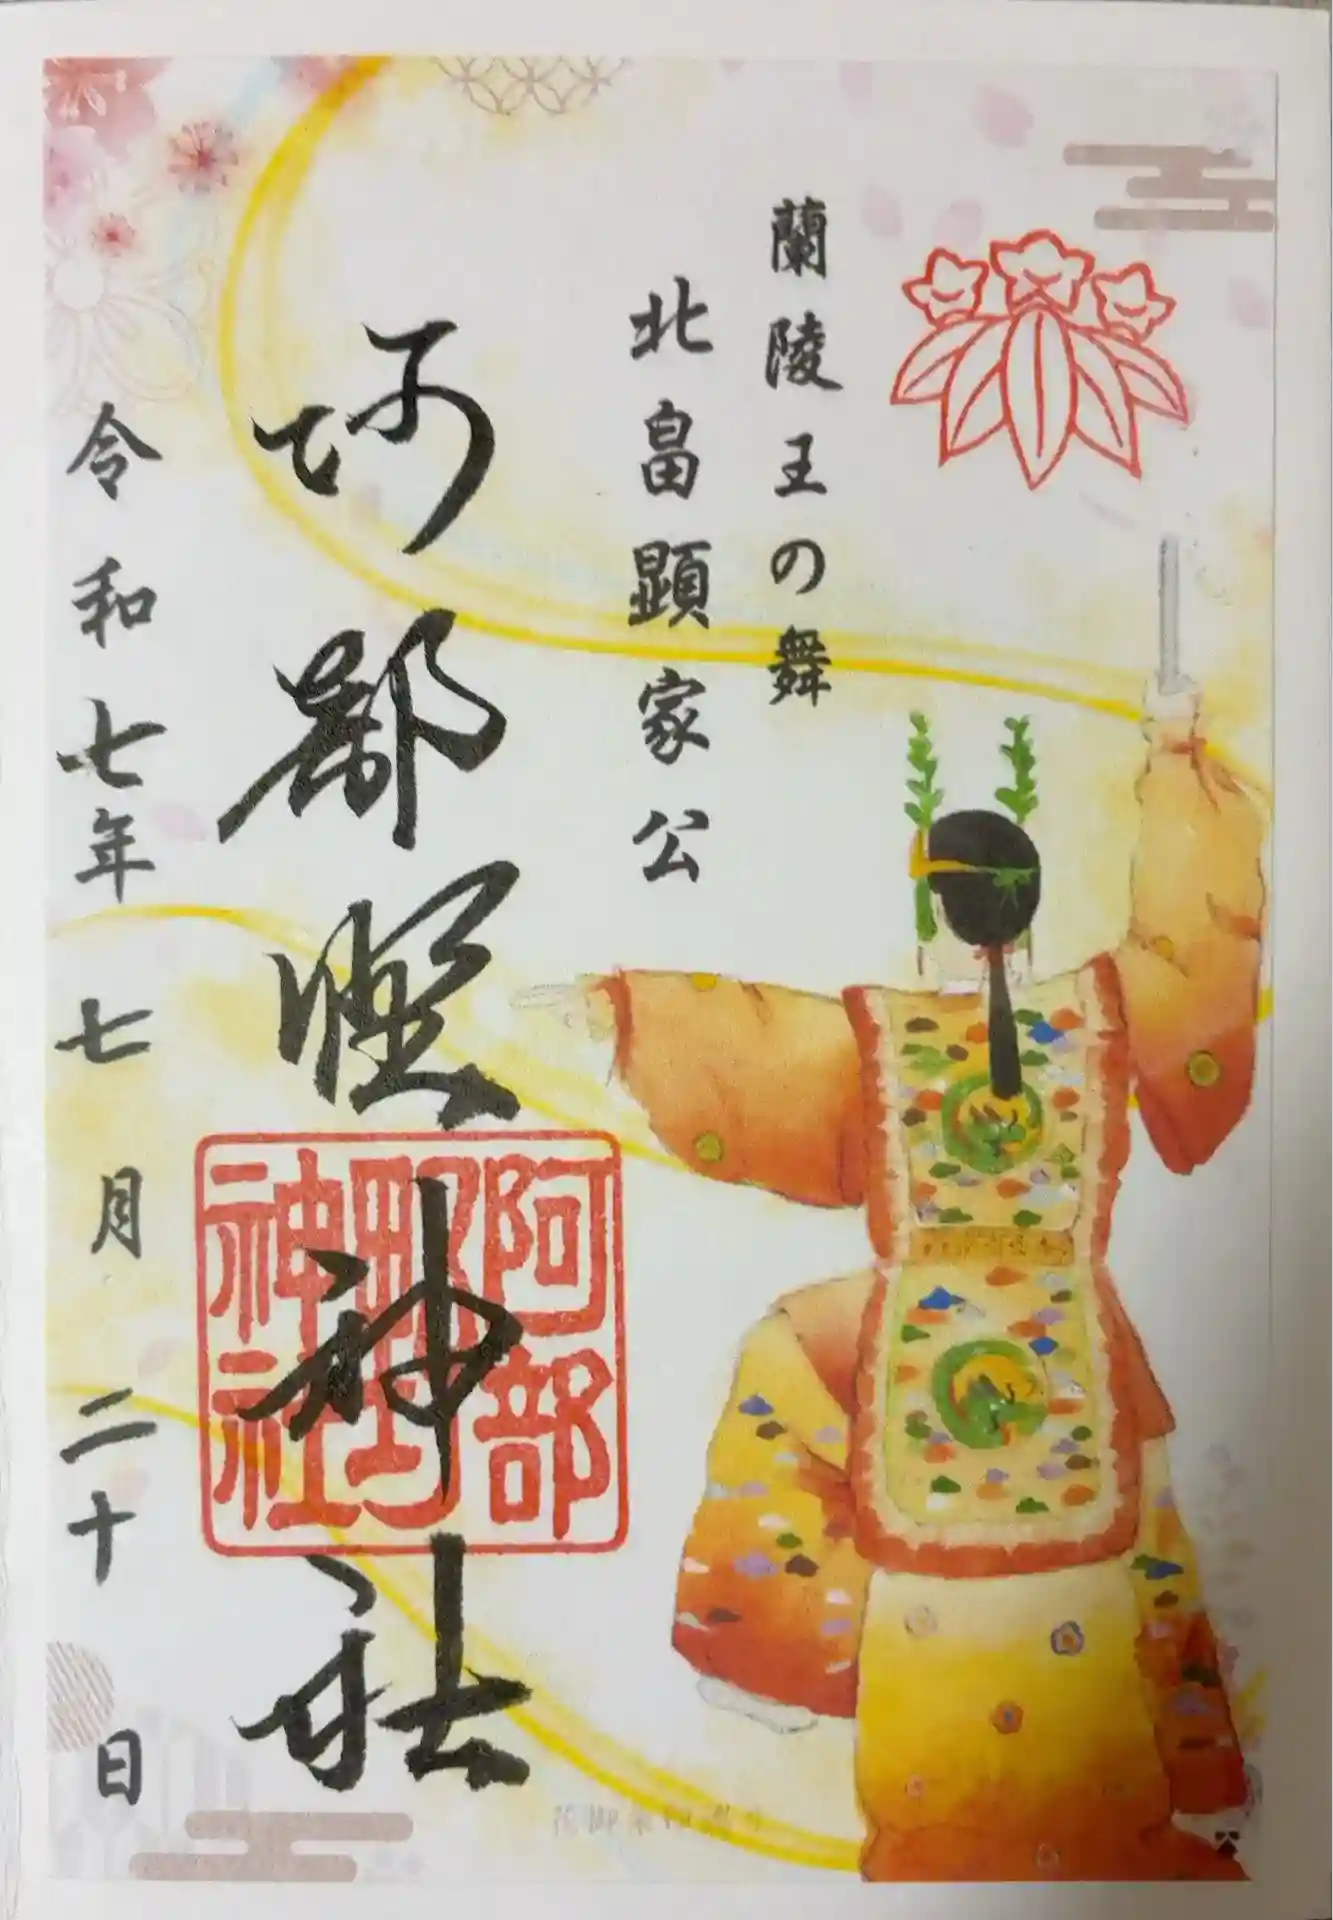 蘭陵王の舞
北畠顕家公
阿部野神社
阿部
野
神社
令和七年七月二十日